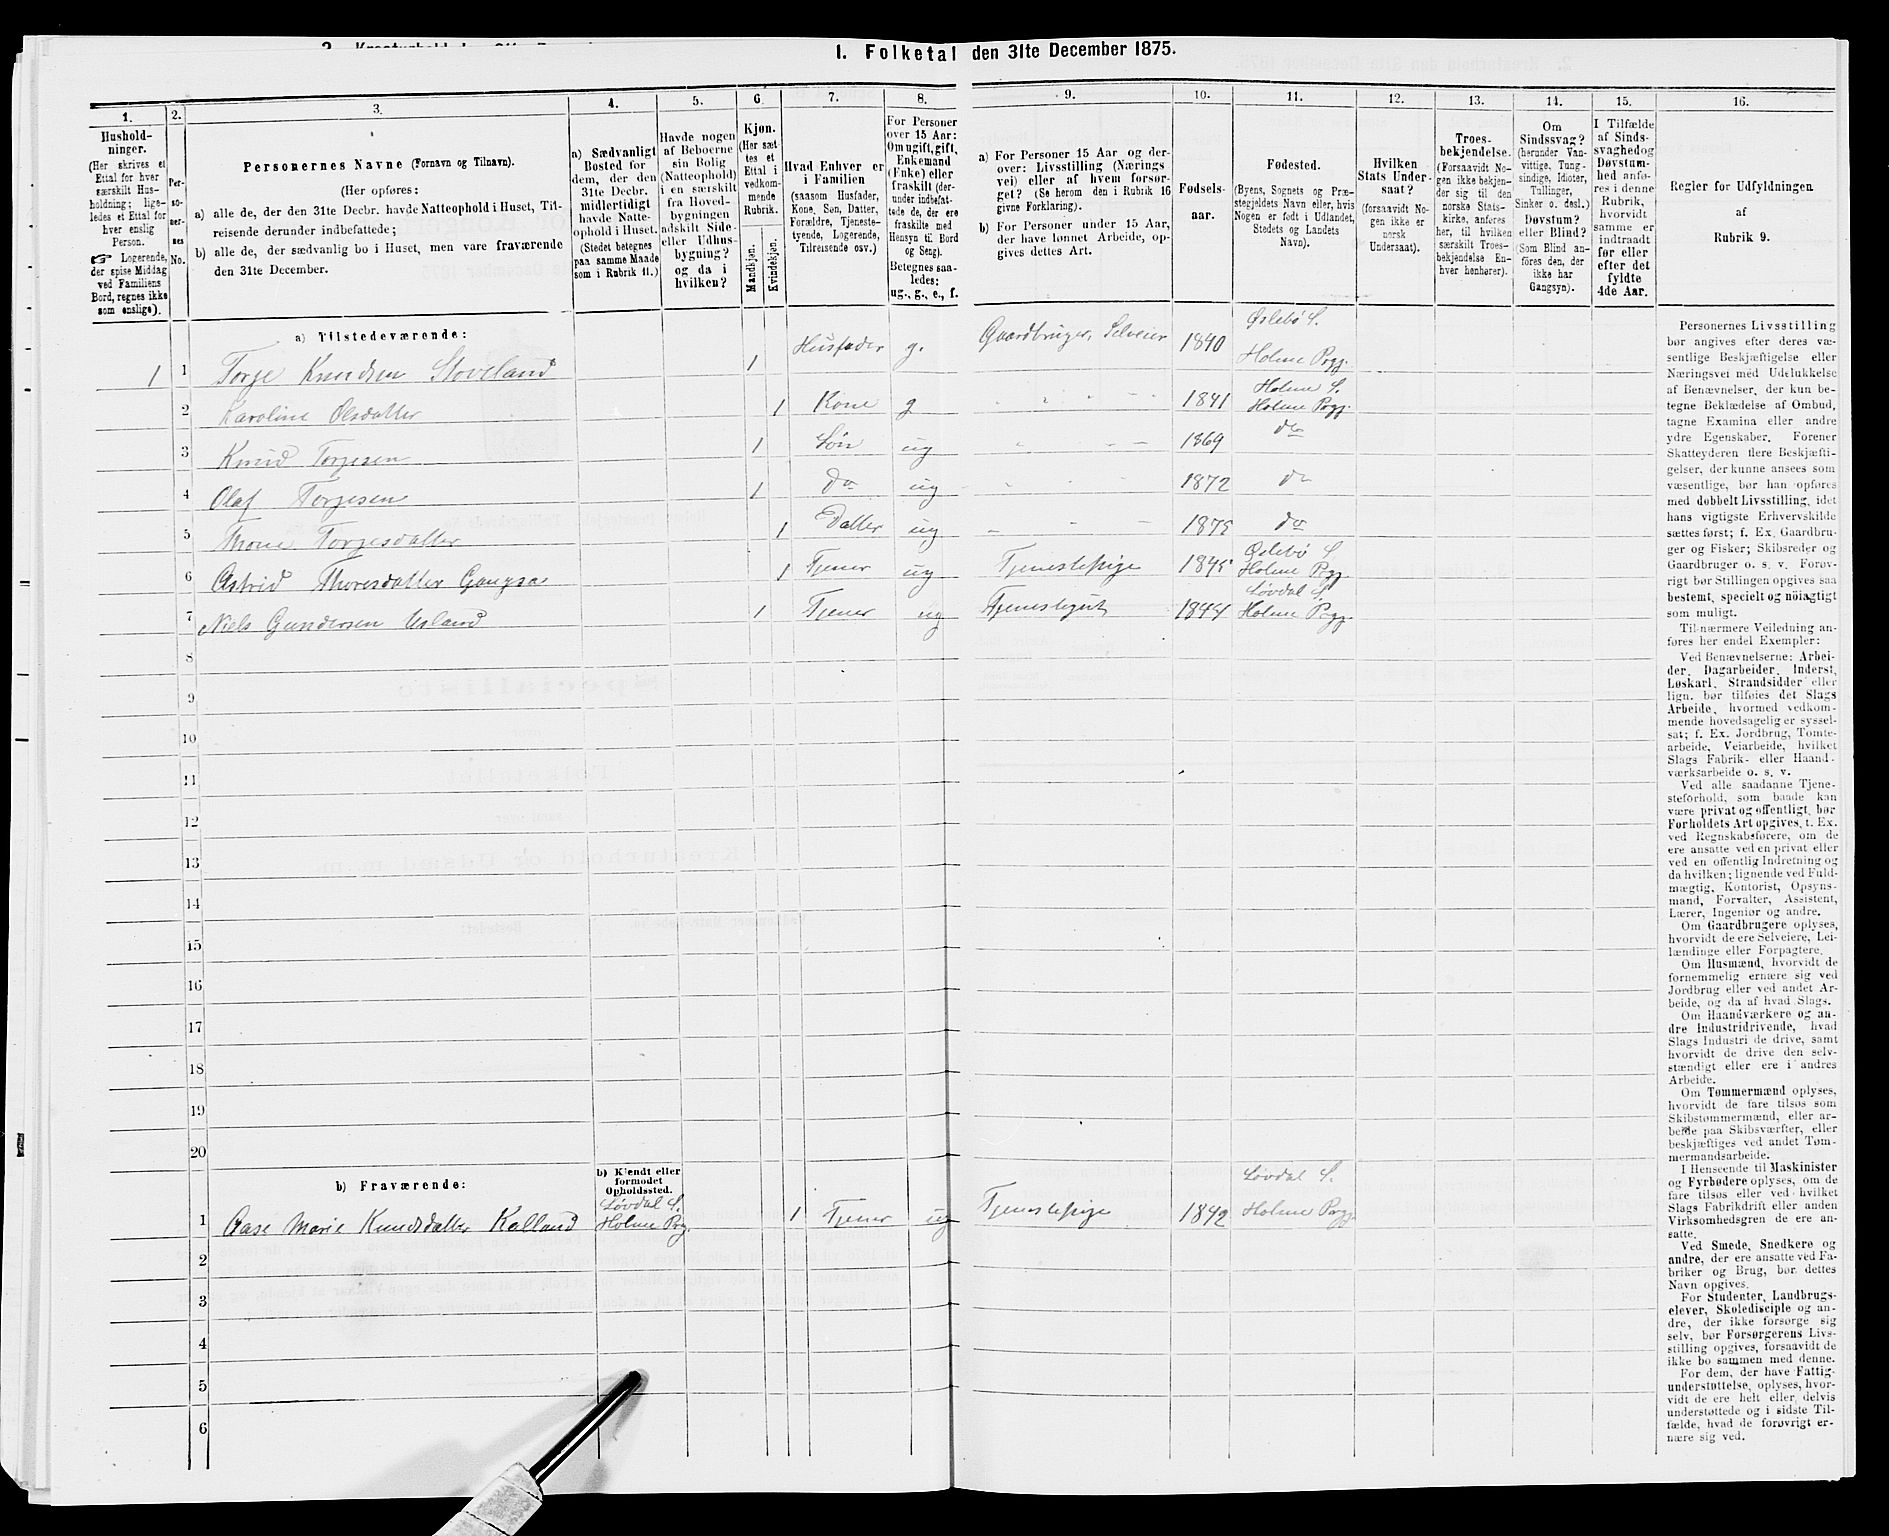 1. Folketal den 31te December 1875.
1.
Hushold-
ninger.
(Her skrives et
Ettal for hver
særskilt Hus-
holdning; lige-
ledes et Ettal for
hver enslig
Person.
☞ Logerende,
der spise Middag
ved Familiens
Bord, regnes ikke
som enslige).
2.
Per-
so-
ner-
nes
No.
3.
Personernes Navne (Fornavn og Tilnavn).
(Her opføres:
a) alle de, der den 31te Decbr. havde Natteophold i Huset, Til-
reisende derunder indbefattede;
b) alle de, der sædvanlig bo i Huset, men vare fraværende
den 31te December.
4.
a) Sædvanligt
Bosted for
dem, der den
31te Decbr.
midlertidigt
havde Natte-
ophold i Huset.
(Stedet betegnes
paa samme Maade
som i Rubrik 11.)
5.
Havde nogen
af Beboerne
sin Bolig
(Natteophold)
i en særskilt
fra Hoved-
bygningen
adskilt Side-
eller Udhus-
bygning?
og da i
hvilken?
6.
Kjøn.
(Her sæt-
tes et
Ettal i
vedkom-
mende
Rubrik.
Mandkjøn.
Kvindekjøn.
7.
Hvad Enhver er
i Familien
(saasom Husfader,
Kone, Søn, Datter,
Forældre, Tjeneste-
tyende, Logerende,
Tilreisende osv.)
8.
For Personer
over 15 Aar:
Om ugift, gift,
Enkemand
(Enke) eller
fraskilt (der-
under indbefat-
tede de, der ere
fraskilte med
Hensyn til Bord
og Seng).
Betegnes saa-
ledes:
ug., g., e., f.
9.
a) For Personer 15 Aar og der-
over: Livsstilling (Nærings-
vei) eller af hvem forsør-
get? (Se herom den i Rubrik 16
givne Forklaring).
b) For Personer under 15 Aar,
der have lønnet Arbeide, op-
gives dettes Art.
10.
Fødsels-
aar.
11.
Fødested.
(Byens, Sognets og Præ-
stegjeldets Navn eller, hvis
Nogen er født i Udlandet,
Stedets og Landets
Navn).
12.
Hvilken
Stats Under-
saat?
(forsaavidt No-
gen ikke er
norsk
Undersaat).
13.
Troes-
bekjendelse.
(Forsaavidt No-
gen ikke bekjen-
der sig til den
norske Stats-
kirke, anføres
her, til hvilken
særskilt Troes-
bekjendelse En-
hver henhører).
14.
Om
Sindssvag?
(herunder Van-
vittige, Tung-
sindige, Idioter,
Tullinger,
Sinker o. desl.)
Døvstum?
eller Blind?
(Som Blind an-
føres den, der
ikke har
Gangsyn).
15.
I Tilfælde
af Sinds-
svaghed og
Døvstum-
hed anfø-
res i denne
Rubrik,
hvorvidt
samme er
indtraadt
før eller
efter det
fyldte
4de Aar.
16.
Regler for Udfyldningen
af
Rubrik 9.
a) Tilstedeværende:
1 1 Torge Knudsen Stoveland 1 Husfader g. Gaardbruger, Selveier 1840 Øslebö S. Holme Prgj.
2 Karoline Olsdatter 1 Kone g " " " 1841 Holme S. Holme Prgj.
3 Knud Torjesen 1 Søn ug " " " 1869 do
4 Olaf Torjesen 1 do ug " " " 1872 do
5 Thone Torjesdatter 1 Datter ug " " " 1875 do
6 Astrid Thoresdatter Gangsa 1 Tjener ug Tjenestepige 1845 Øslebö S. Holme Prgj.
7 Niels Gundersen Usland 1 Tjener ug Tjenestegut Løvdal S. Holme Prgj.
8
9
10
11
12
13
14
15
16
17
18
19
20
b) Fraværende:
b) Kjendt eller
formodet
Opholdssted.
1 Aase Marie Knudsdatter Kalland Løvdal S. Holme Prg. 1 Tjener ug Tjenestepige 1842 Løvdal S. Holme Prgj.
2
3
4
5
6
Personernes Livsstilling
bør angives efter deres væ-
sentlige Beskjæftigelse eller
Næringsvei med Udelukkelse
af Benævnelser, der kun be-
tegne Beklædelse af Ombud,
tagne Examina eller andre
ydre Egenskaber. Forener
Skatteyderen flere Beskjæfti-
gelser, der kunne ansees som
væsentlige, bør han opføres
med dobbelt Livsstilling, idet
hans vigtigste Erhvervskilde
sættes først; f. Ex. Gaardbru-
ger og Fisker; Skibsreder og
Gaardbruger o. s. v. Forøv-
rigt bør Stillingen opgives saa
bestemt, specielt og nöiagtigt
som muligt.
Til nærmere Veiledning an-
føres her endel Exempler:
Ved Benævnelserne: Arbei-
der, Dagarbeider, Inderst,
Løskarl, Strandsidder eller
lign. bør tilføies det Slags
Arbeide, hvormed vedkom-
mende hovedsagelig er syssel-
sat; f. Ex. Jordbrug, Tomte-
arbeide, Veiarbeide, hvilket
Slags Fabrik- eller Haand-
værksarbeide o. s. v.
Ved alle saadanne Tjene-
steforhold, som baade kan
være privat og offentligt, bør
Forholdets Art opgives, f. Ex.
ved Regnskabsførere, om de
ere ansatte ved en privat eller
ved en offentlig Indretning og
da hvilken; lignende ved Fuld-
mægtig, Kontorist, Opsyns-
mand, Forvalter, Assistent,
Lærer, Ingeniør og andre.
Om Gaardbrugere oplyses,
hvorvidt de ere Selveiere, Lei-
lændinge eller Forpagtere.
Om Husmænd, hvorvidt de
fornemmelig ernære sig ved
Jordbrug eller ved andet Ar-
beide, og da af hvad Slags.
Om Haandværkere og an-
dre Industridrivende, hvad
Slags Industri de drive, samt
hvorvidt de drive den selv-
stændigt eller ere i andres
Arbeide.
Om Tømmermænd oplyses,
hvorvidt de fare tilsøs som
Skibstømmermænd, eller ar-
beide paa Skibsværfter, eller
beskjæftiges ved andet Tøm-
mermandsarbeide.
I Henseende til Maskinister
og Fyrbødere oplyses, om de
fare tilsøs eller ved hvilket
Slags Fabrikdrift eller anden
Virksomhedsgren de ere an-
satte.
Ved Smede, Snedkere og
andre, der ere ansatte ved Fa-
briker og Brug, bør dettes
Navn opgives.
For Studenter, Landbrugs-
elever, Skoledisciple og an-
dre, der ikke forsørge sig
selv, bør Forsørgerens Livs-
stilling opgives, forsaavidt de
ikke bo sammen med denne.
For dem, der have Fattig-
understøttelse, oplyses, hvor-
vidt de ere helt eller delvis
understøttede og i sidste Til-
fælde, hvad de forøvrigt er-
nære sig ved.